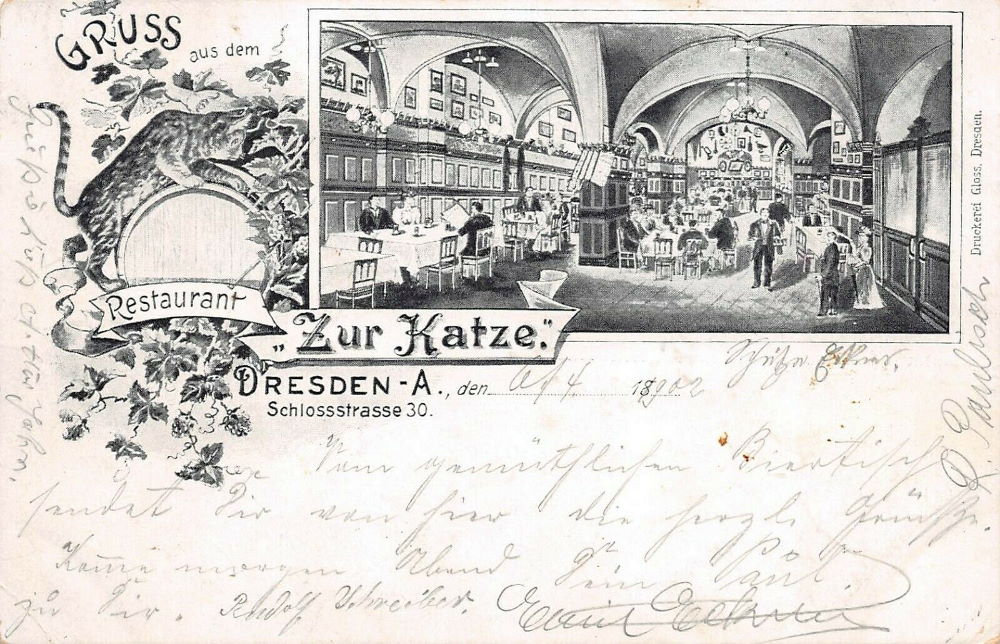 GRUSS
aus dem
Restaurant
"Zur Katze".
DRESDEN-A., den 18902
Schlossstrasse 30.
Druckerei Gloss, Dresden.
Vom gemüthlichen Biertisch
sendet Dir von hier die herzl. Grüße.
Komme morgen Abend Dein Paul.
zu Dir. Rudolf Schreiber.